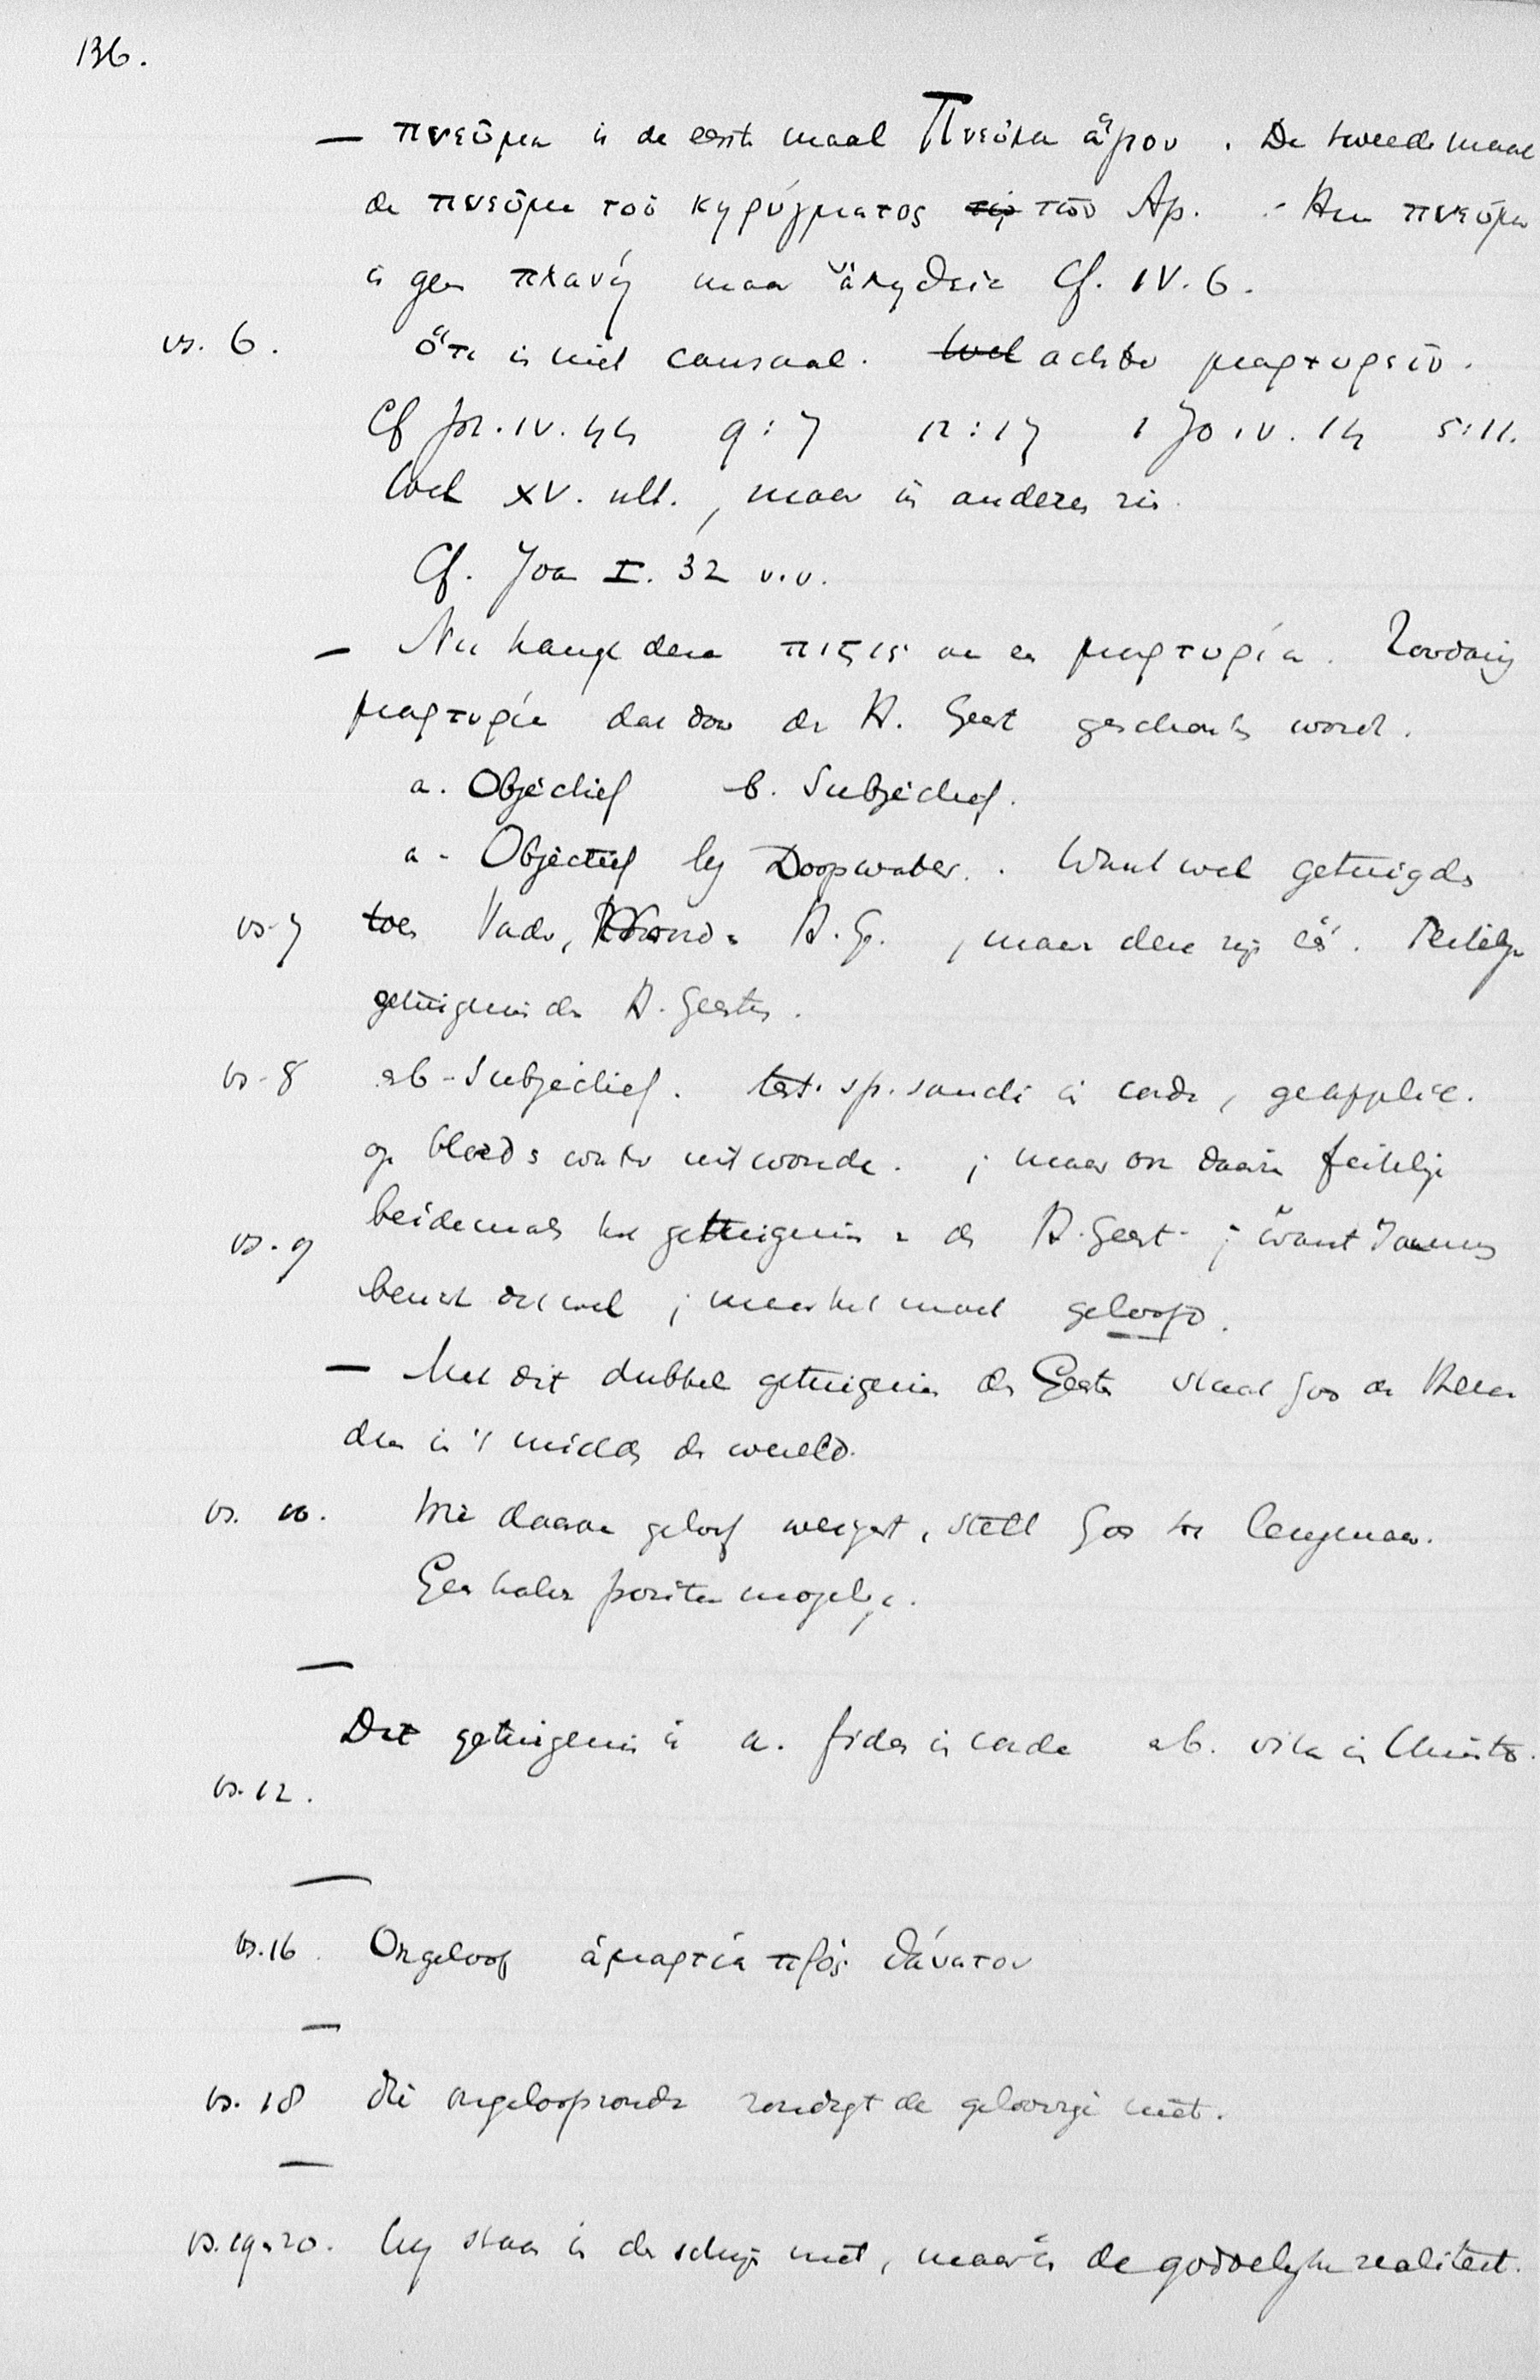 136.
— πνεῦμα is de eerste maal Πνεῦμα ἅγιον. De tweede maal
de πνεῦμα τοῦ κηρύγματος τῶν Ap. Hun πνεῦμα
is geen πλανή maar ἀληθεία Cf. IV. 6.
vs. 6. ὅτι is niet causaal. Wel achter μαρτυρεῖν.
Cf Jo. IV. 44 9:7 12:17 1 Jo IV. 14 5:11.
Wel XV. ult., maar in andere zin.
Cf. Joa I. 32 v.v.
— Nu hangt deze πιστις aan een μαρτυρία. Zoodanig
μαρτυρία dat door de H. Geest geschonken wordt.
a. Objéctief b. Subjéctief.
a. Objéctief by Doopwater. Want wel getuigden
vs. 7 toen Vader, H. G., maar deze zijn één. Feitelijk
getuigenis des H. Geestes.
vs. 8 b. Subjéctief. test. sp. sancti in corde, geapplic.
op bloed & water uit wonde.; maar ook daarin feitelijk
beidemaal het getuigenis des H. Geest; want Joannes
vs. 9 het wel; maar het moet geloofd.
— Met dit dubbel getuigenis des Geestes staat God de
in 't midden der wereld.
vs. 10. Wie daaraan geloof weigert, stelt God tot leugenaar.
Geen halve positie mogelijk.
—
Dit getuigenis is a. fides in corde b. vita in Christo.
vs. 12.
—
vs. 16. Ongeloof ἁμαρτία πρός θάνατον
—
vs. 18 Die ongeloofzonde zondigt de geloovige niet.
—
vs. 19 & 20. Wij staan in de schijn niet, maar in de goddelijke realiteit.